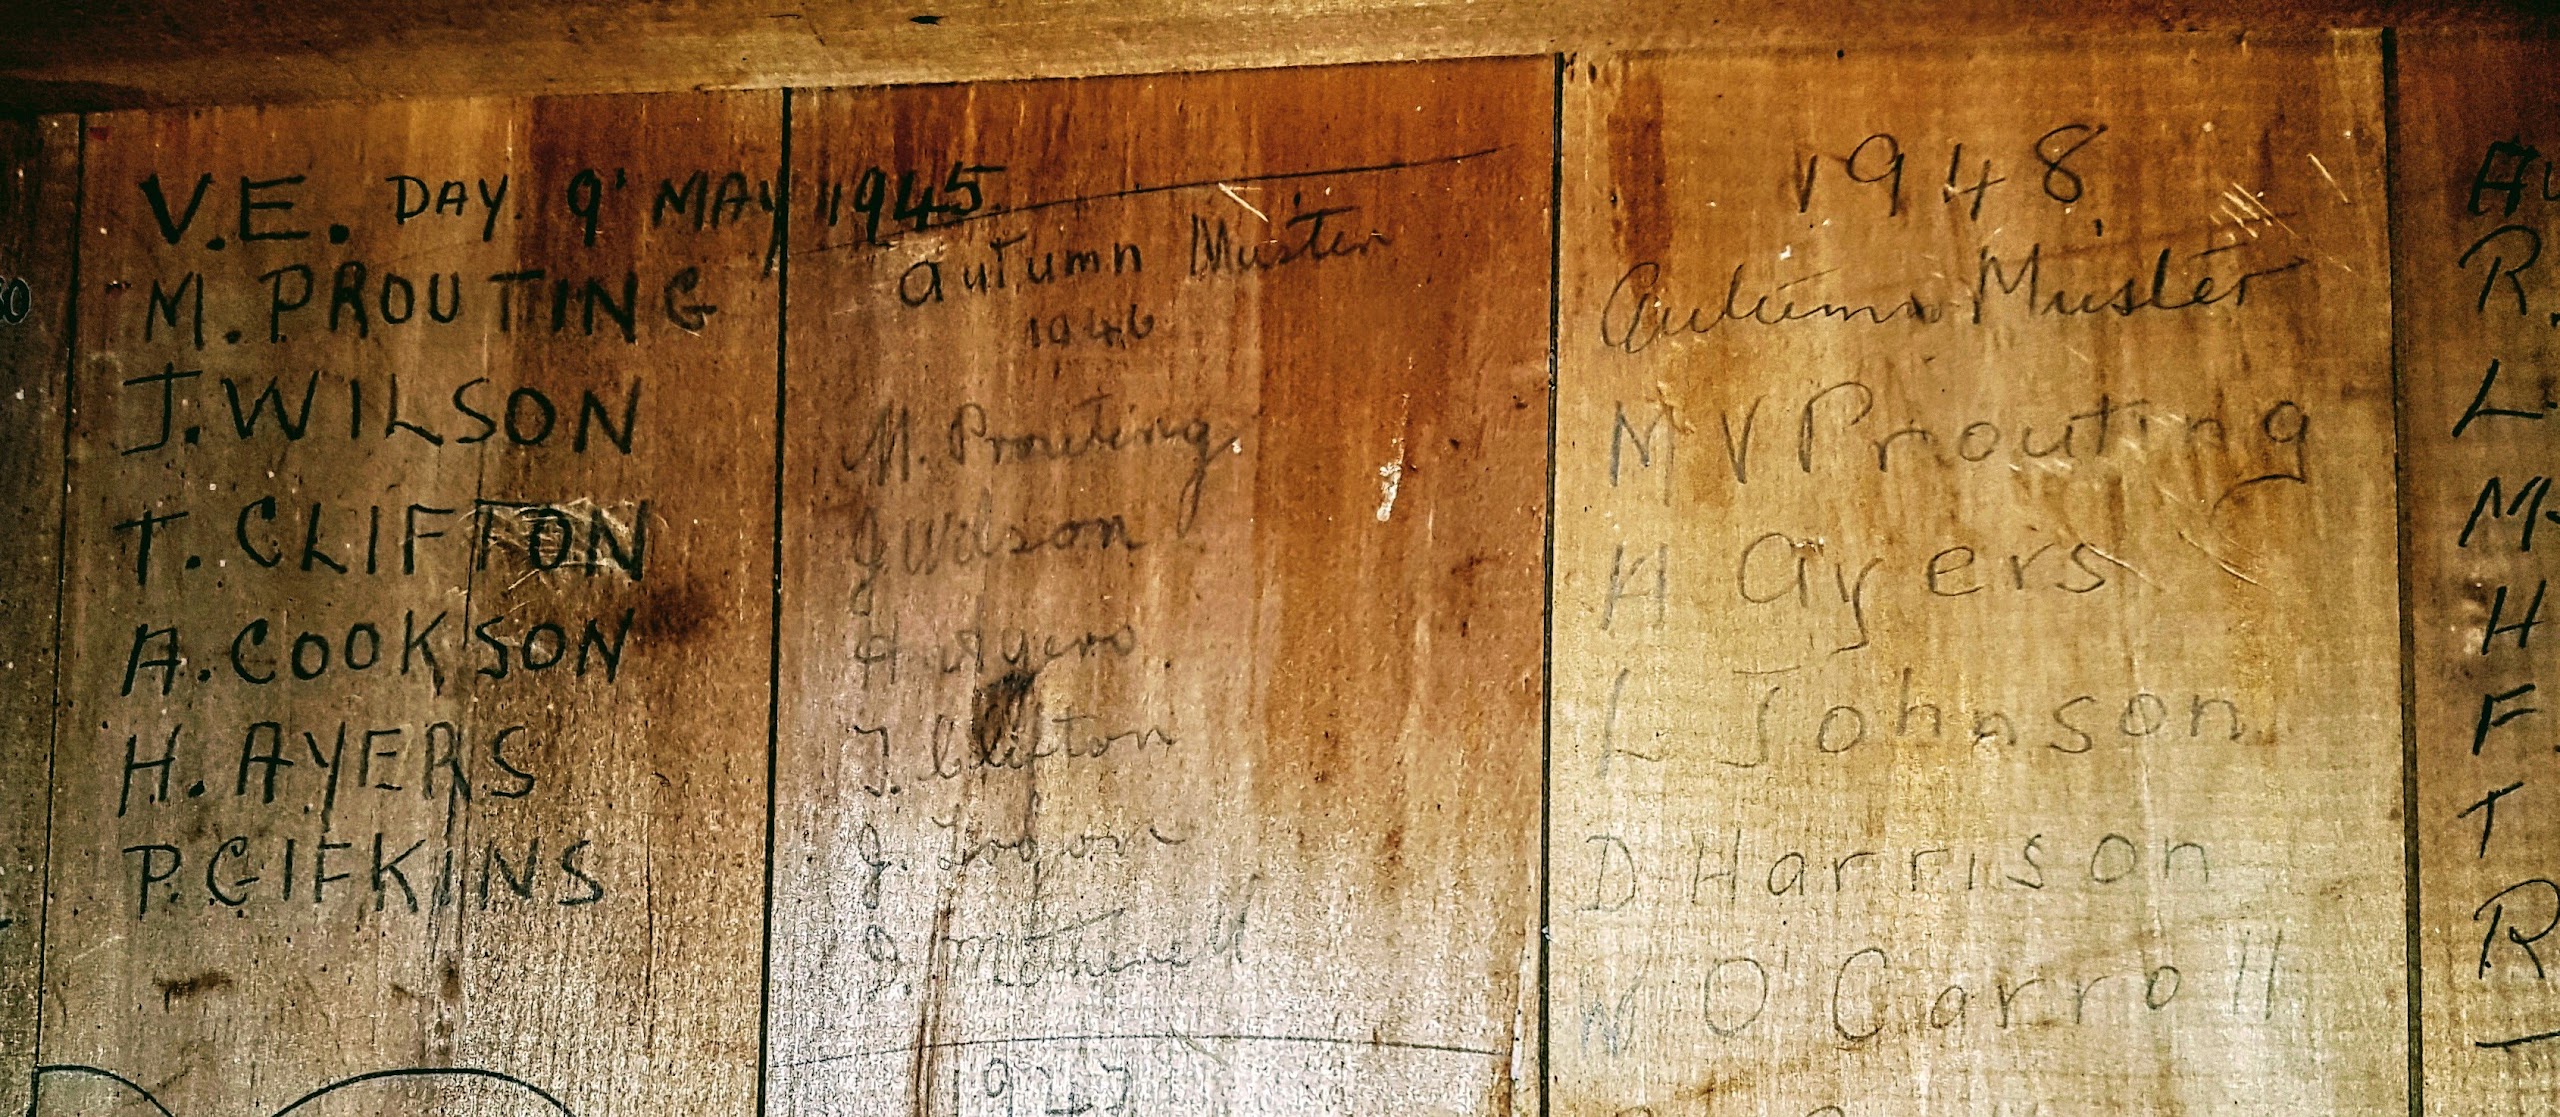 V.E. DAY. 9' MAY 1945.
M. PROUTING
J. WILSON
T. CLIFTON
A. COOKSON
H. AYERS
P. GIFKINS
Autumn Muster
1946
M. Prouting
J Wilson
H Ayers
T. Clifton
J.
J. Motherwell
1948
Autumn Muster
M V Prouting
H Ayers
L Johnson
D Harrison
W O'Carroll
R.
L.
M.
H
F.
T
R